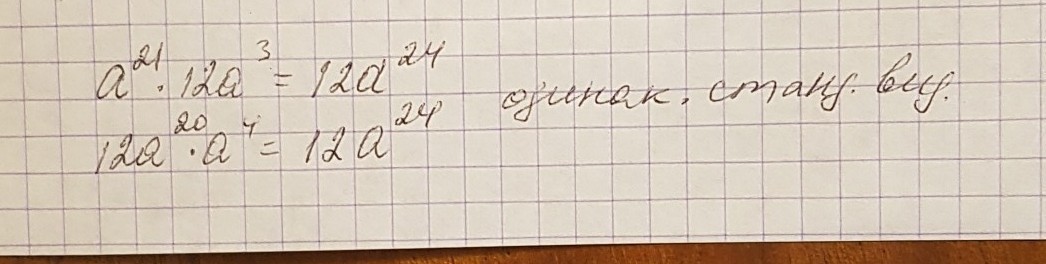 a²¹ · 12a³ = 12a²⁴
одинак. станд. вид.
12a²⁰ · a⁴ = 12a²⁴